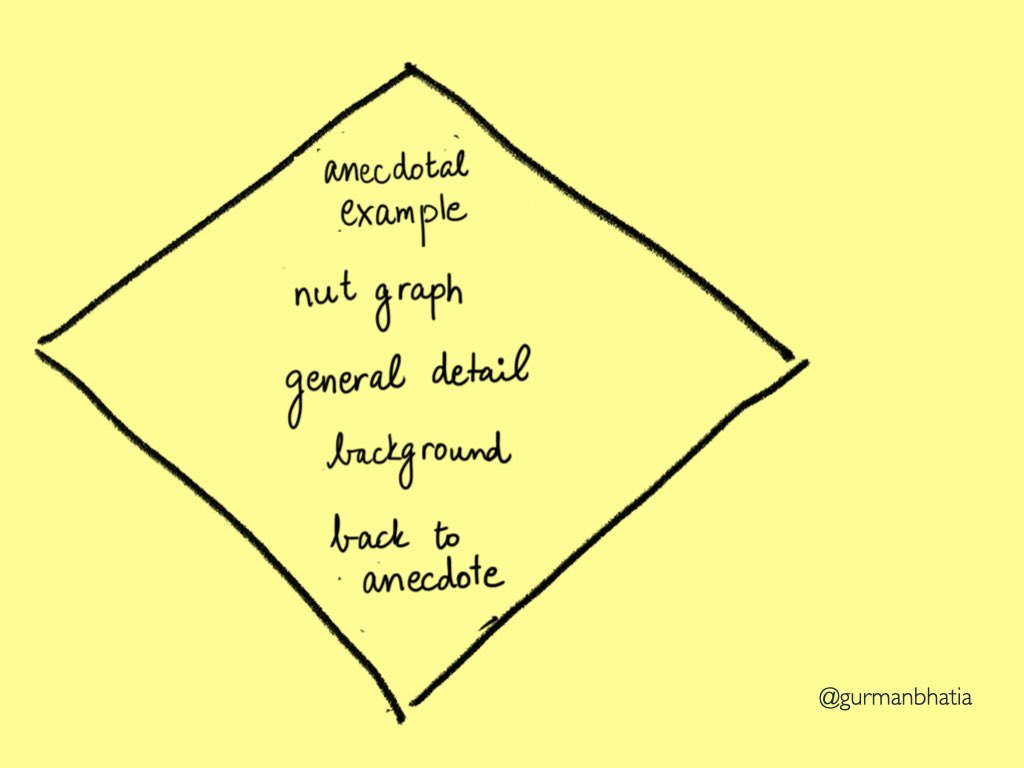 anecdotal
example
nut graph
general detail
background
back to
anecdote
@gurmanbhatia